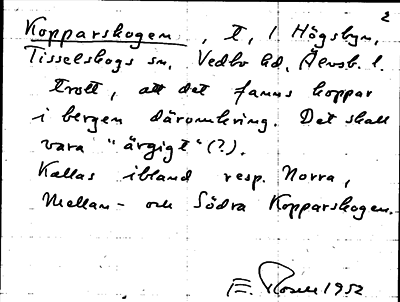 2
Kopparskogen, t, i Högsbyn,
Tisselskogs sn, Vedbo hd, Älvsb. l.
trott, att det fanns koppar
i bergen däromkring. Det skall
vara "ärgigt" (?).
Kallas ibland resp. Norra,
Mellan- och Södra Kopparskogen.
E. Rosell 1952